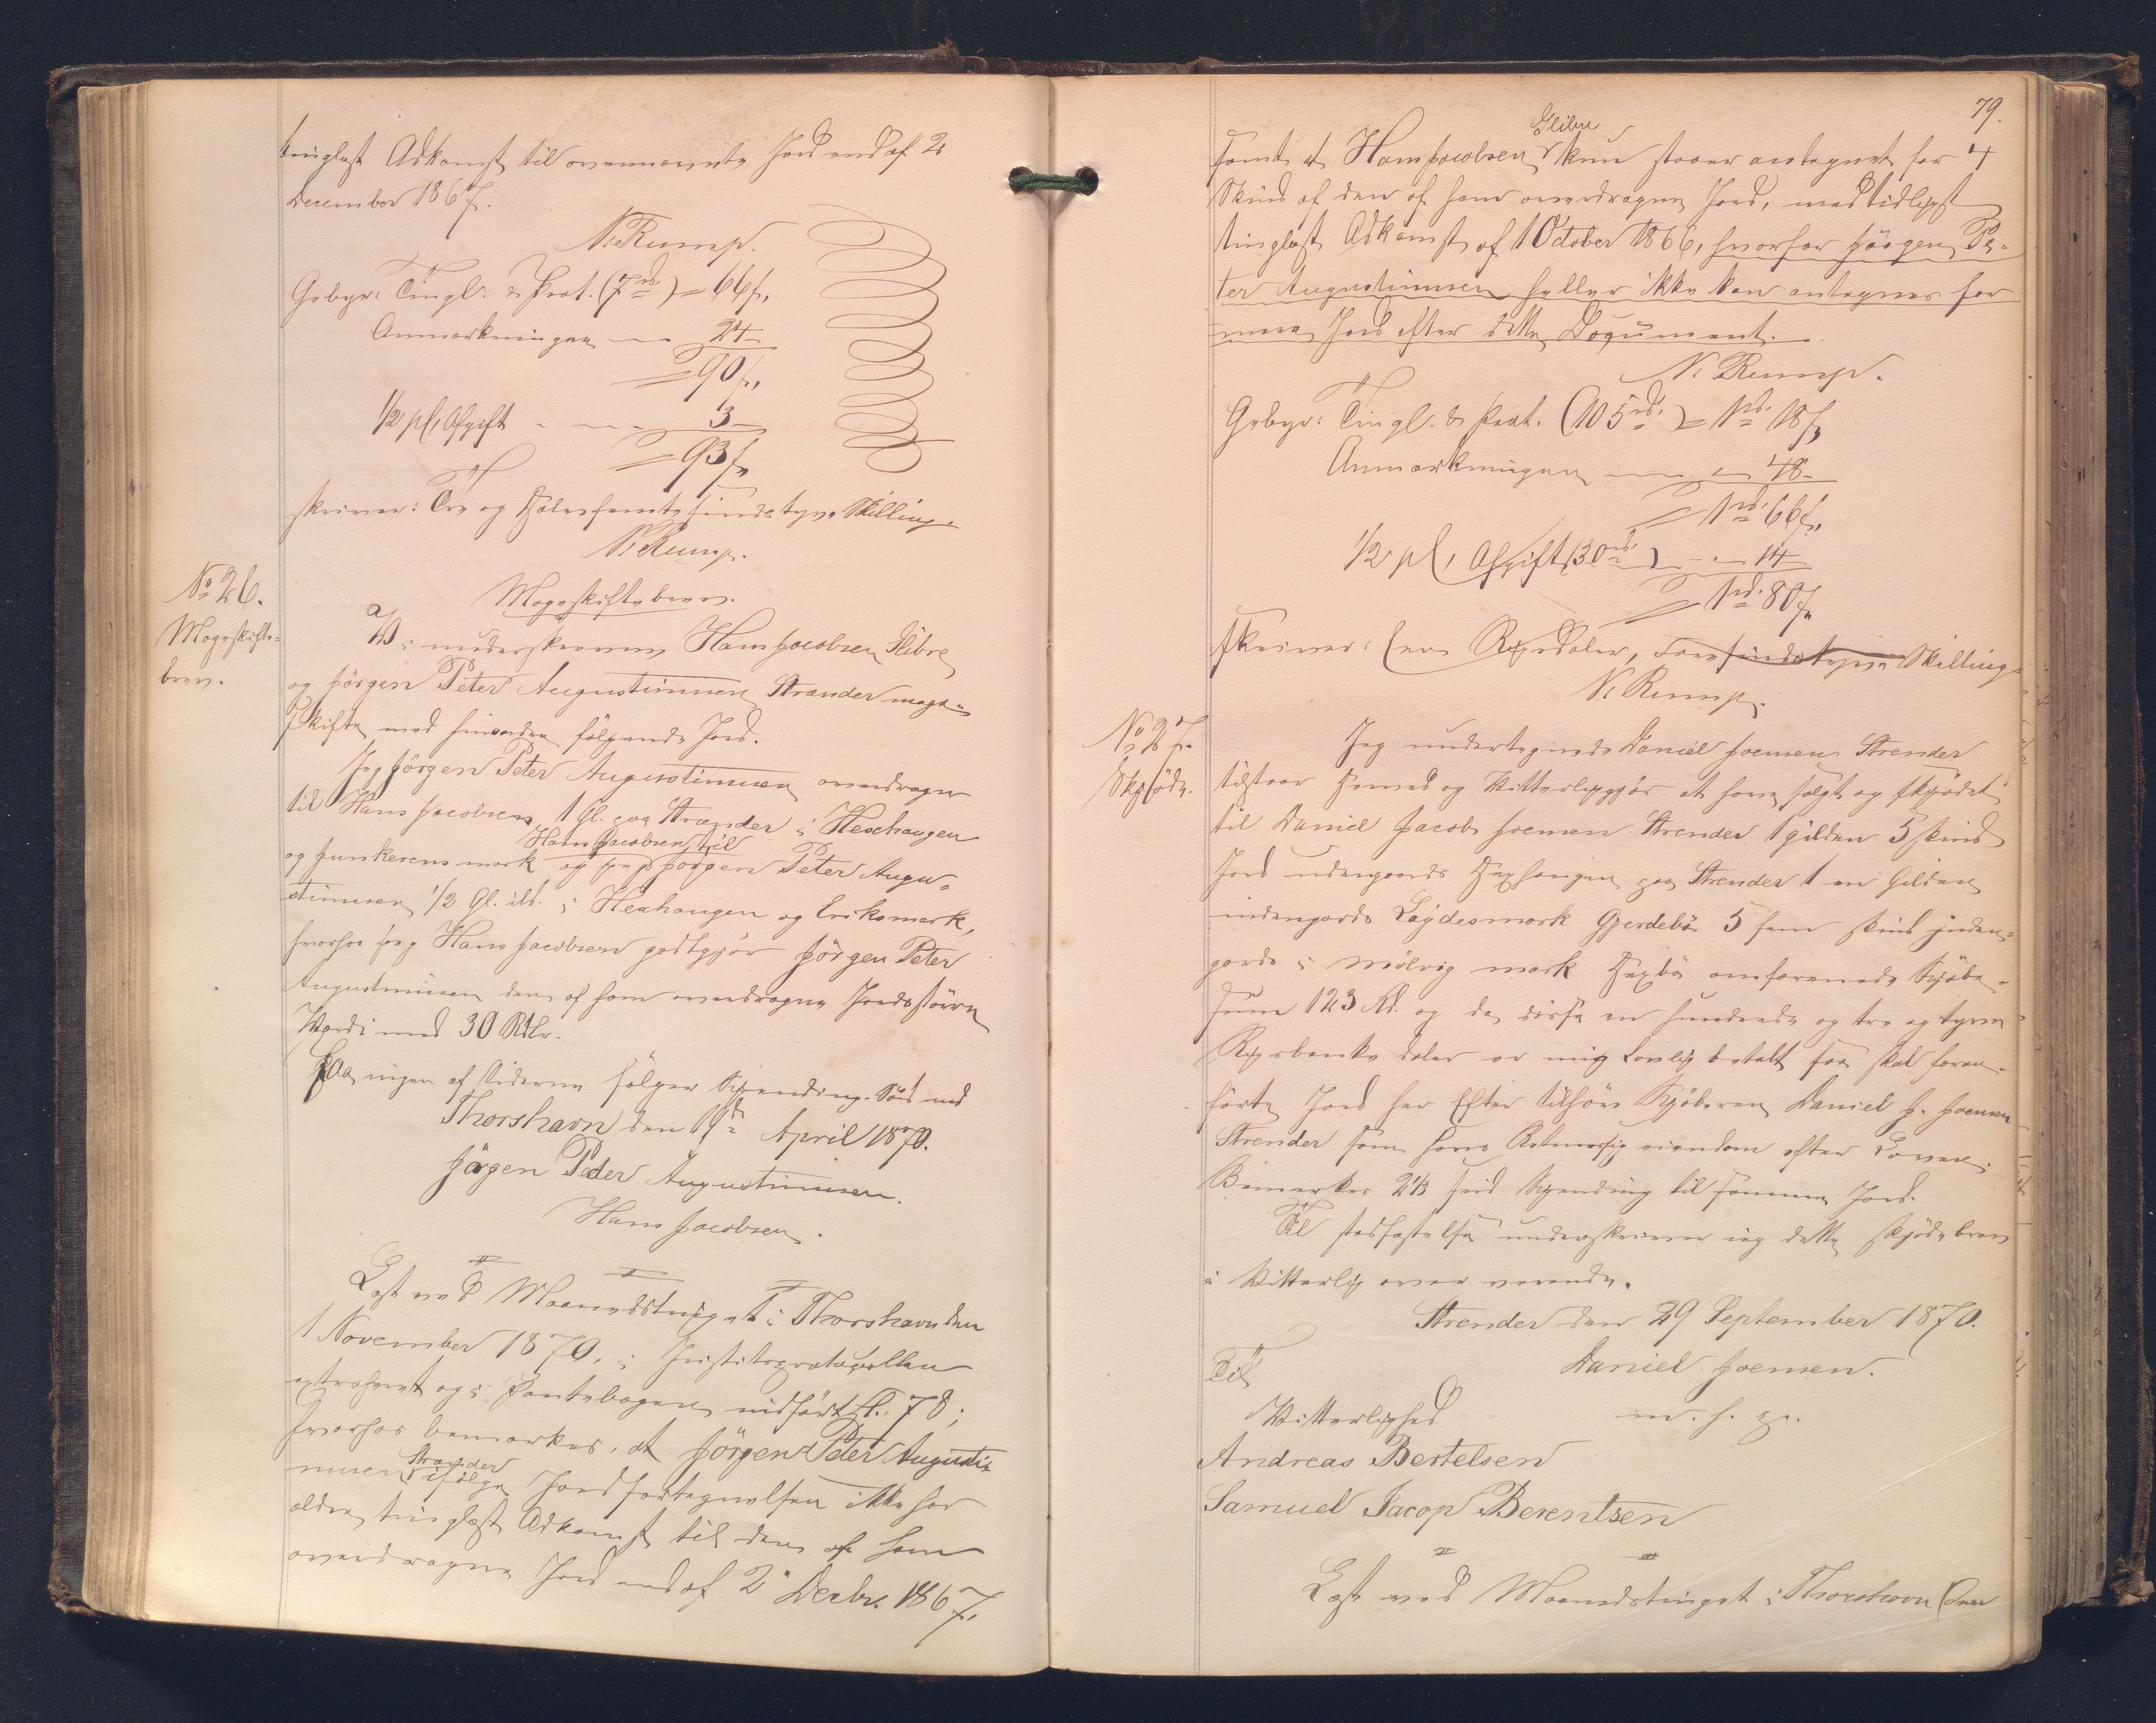 tinglæst Adkomst til ovennævnte Jord end af 2
December 1867.
N. Rump.
Gebyr: Tingl. & Prot. (7 rd.) = 66 s,
Anmærkningen — 24 -
= 90 s,
1/2 pCt, Afgift - — 3 -
= 93 s,
skriver: Tre og Halvfemtesindstyve Skilling.
N. Rump.
No 26.
Mageskifte-
brev.
Mageskiftebrev.
Vi underskrevne Hans Jacobsen Glibre
og Jörgen Peter Augustinusen Strænder mage-
skifte med hinanden følgende Jord.
Jeg Jörgen Peter Augustinusen overdrager
til Hans Jacobsen 1 Gl. paa Strænder i Hexhaugen
Hans Jacobsen til
og Junkerens mark og jeg Jörgen Peter Augu-
stinusen 1/2 Gl. ibt. i Hexhaugen og Eriksmark,
hvorhos jeg Hans Jacobsen godtgjør Jörgen Peter
Augustinusen den af ham overdragne Jords større
Værdi med 30 Rdlr.
Paa ingen af Siderne følger Spending. Saa med
Thorshavn den April 1870.
Jörgen Peder Augustinusen.
Hans Jacobsen.
Læst ved Maanedstinget i Thorshavn den
1 November 1870, i Justitsprotocollen
extraheret og i Pantebogen indført fl. 78;
hvorhos bemærkes, at Jörgen Peter Augusti-
Strænder
nusen ifølge Jordfortegnelsen ikke har
ældre tinglæst Adkomst til den af ham
overdragne Jord end af 2 Decbr. 1867,
79.
Glibre
samt at Hans Jacobsen kun staaer antegnet for 4
Skind af den af ham overdragne Jord, med tidligst
tinglæst Adkomst af 1 October 1866, hvorfor Jörgen Pe-
ter Augustinusen heller ikke kan antegnes for
mere Jord efter dette Document.
N. Rump.
Gebyr: Tingl. & Prot. (105 rd.) = 1 rd. 18 s,
Anmærkningen — 48 -
= 1 rd. 66 s,
1/2 pCt, Afgift (30 rd.) — 14
= 1 rd. 80 s,
skriver: Een Rigsdaler, Firesindstyve Skilling.
N. Rump.
No 27.
Skjøde.
Jeg undertegnede Daniel Joensen Strender
tilstaar hermed og Vitterliggjør at have solgt og skjødet
til Daniel Jacob Joensen Strender 1 gilden 5 skind
Jord udengards Hexhaugen paa Strender 1 en Gilden
indengards Laydesmark Gjerdebø 5 fem skind inden-
gards i Mølvig mark Hexbø omforenede Kjøbe-
sum 123 Rd. og da disse en hundrede og tre og tyve
Rigsbanks daler er mig Lovlig betalt saa skal foran-
førte Jord her Efter tilhøre Kjøberen Daniel J. Joensen
Strender som hans Retmæssig eiendom efter Loven.
Bemærkes 2 1/3 Spending til samme Jord.
Til stadfæstelse underskriver ieg dette skjødebrev
i Vitterlig overværende.
Strender den 29 September 1870.
Til Daniel Joensen.
Vitterlighed m. f. p.
Andreas Bertelsen
Samuel Jacop Berentsen
Læst ved Maanedstinget i Thorshavn den